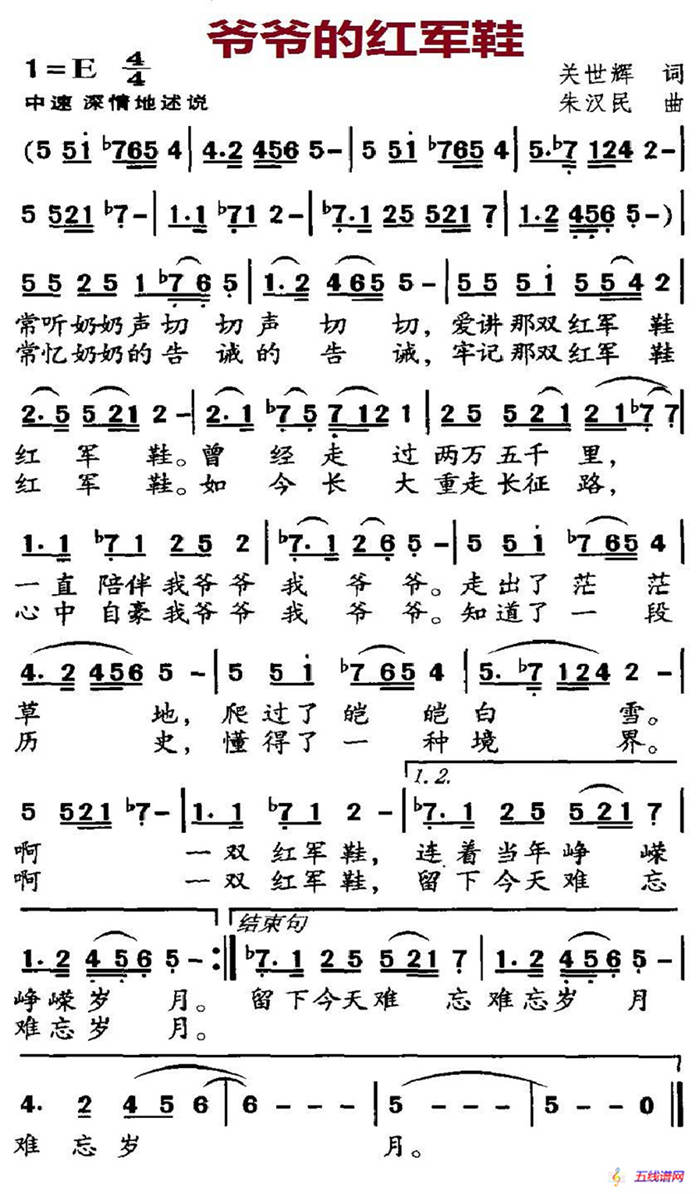 爷爷的红军鞋
1=E 4/4
关世辉 词
中速 深情地述说
朱汉民 曲
(5 51 b765 4 | 4.2 456 5- | 5 51 b765 4 | 5.b7 124 2- |
5 521 b7- | 1.1 b71 2- | b7.1 25 521 7 | 1.2 456 5- ) |
55 25 1 b76 5 | 1.2 465 5- | 55 51 554 2 |
常听奶奶声切 切声 切 切，爱讲那双红军 鞋
常忆奶奶的告 诫的 告 诫，牢记那双红军 鞋
2.5 521 2- | 2.1 b75 712 1 | 25 521 21b7 7 |
红 军 鞋。曾 经走 过两万 五千 里，
红 军 鞋。如 今长 大重走长征 路，
1.1 b71 25 2 | b7.1 26 5- | 5 51 b765 4 |
一直 陪伴我爷爷 我 爷 爷。走出了 茫 茫
心中 自豪我爷爷 我 爷 爷。知道了 一 段
4.2 456 5- | 5 51 b765 4 | 5.b7 124 2- |
草 地，爬过了 皑 皑白 雪。
历 史，懂得了 一 种境 界。
1.2.
5 521 b7- | 1.1 b71 2- | b7.1 25 521 7 |
啊 一双红军鞋，连着当年峥 嵘
啊 一双红军鞋，留下今天难 忘
结束句
1.2 456 5- :| b7.1 25 521 7 | 1.2 456 5- |
峥嵘岁 月。留下今天难 忘难忘岁 月
难忘岁 月。
4. 2 456 | 6 - - - | 5 - - - | 5 - - 0 |
难 忘岁 月。
五线谱网